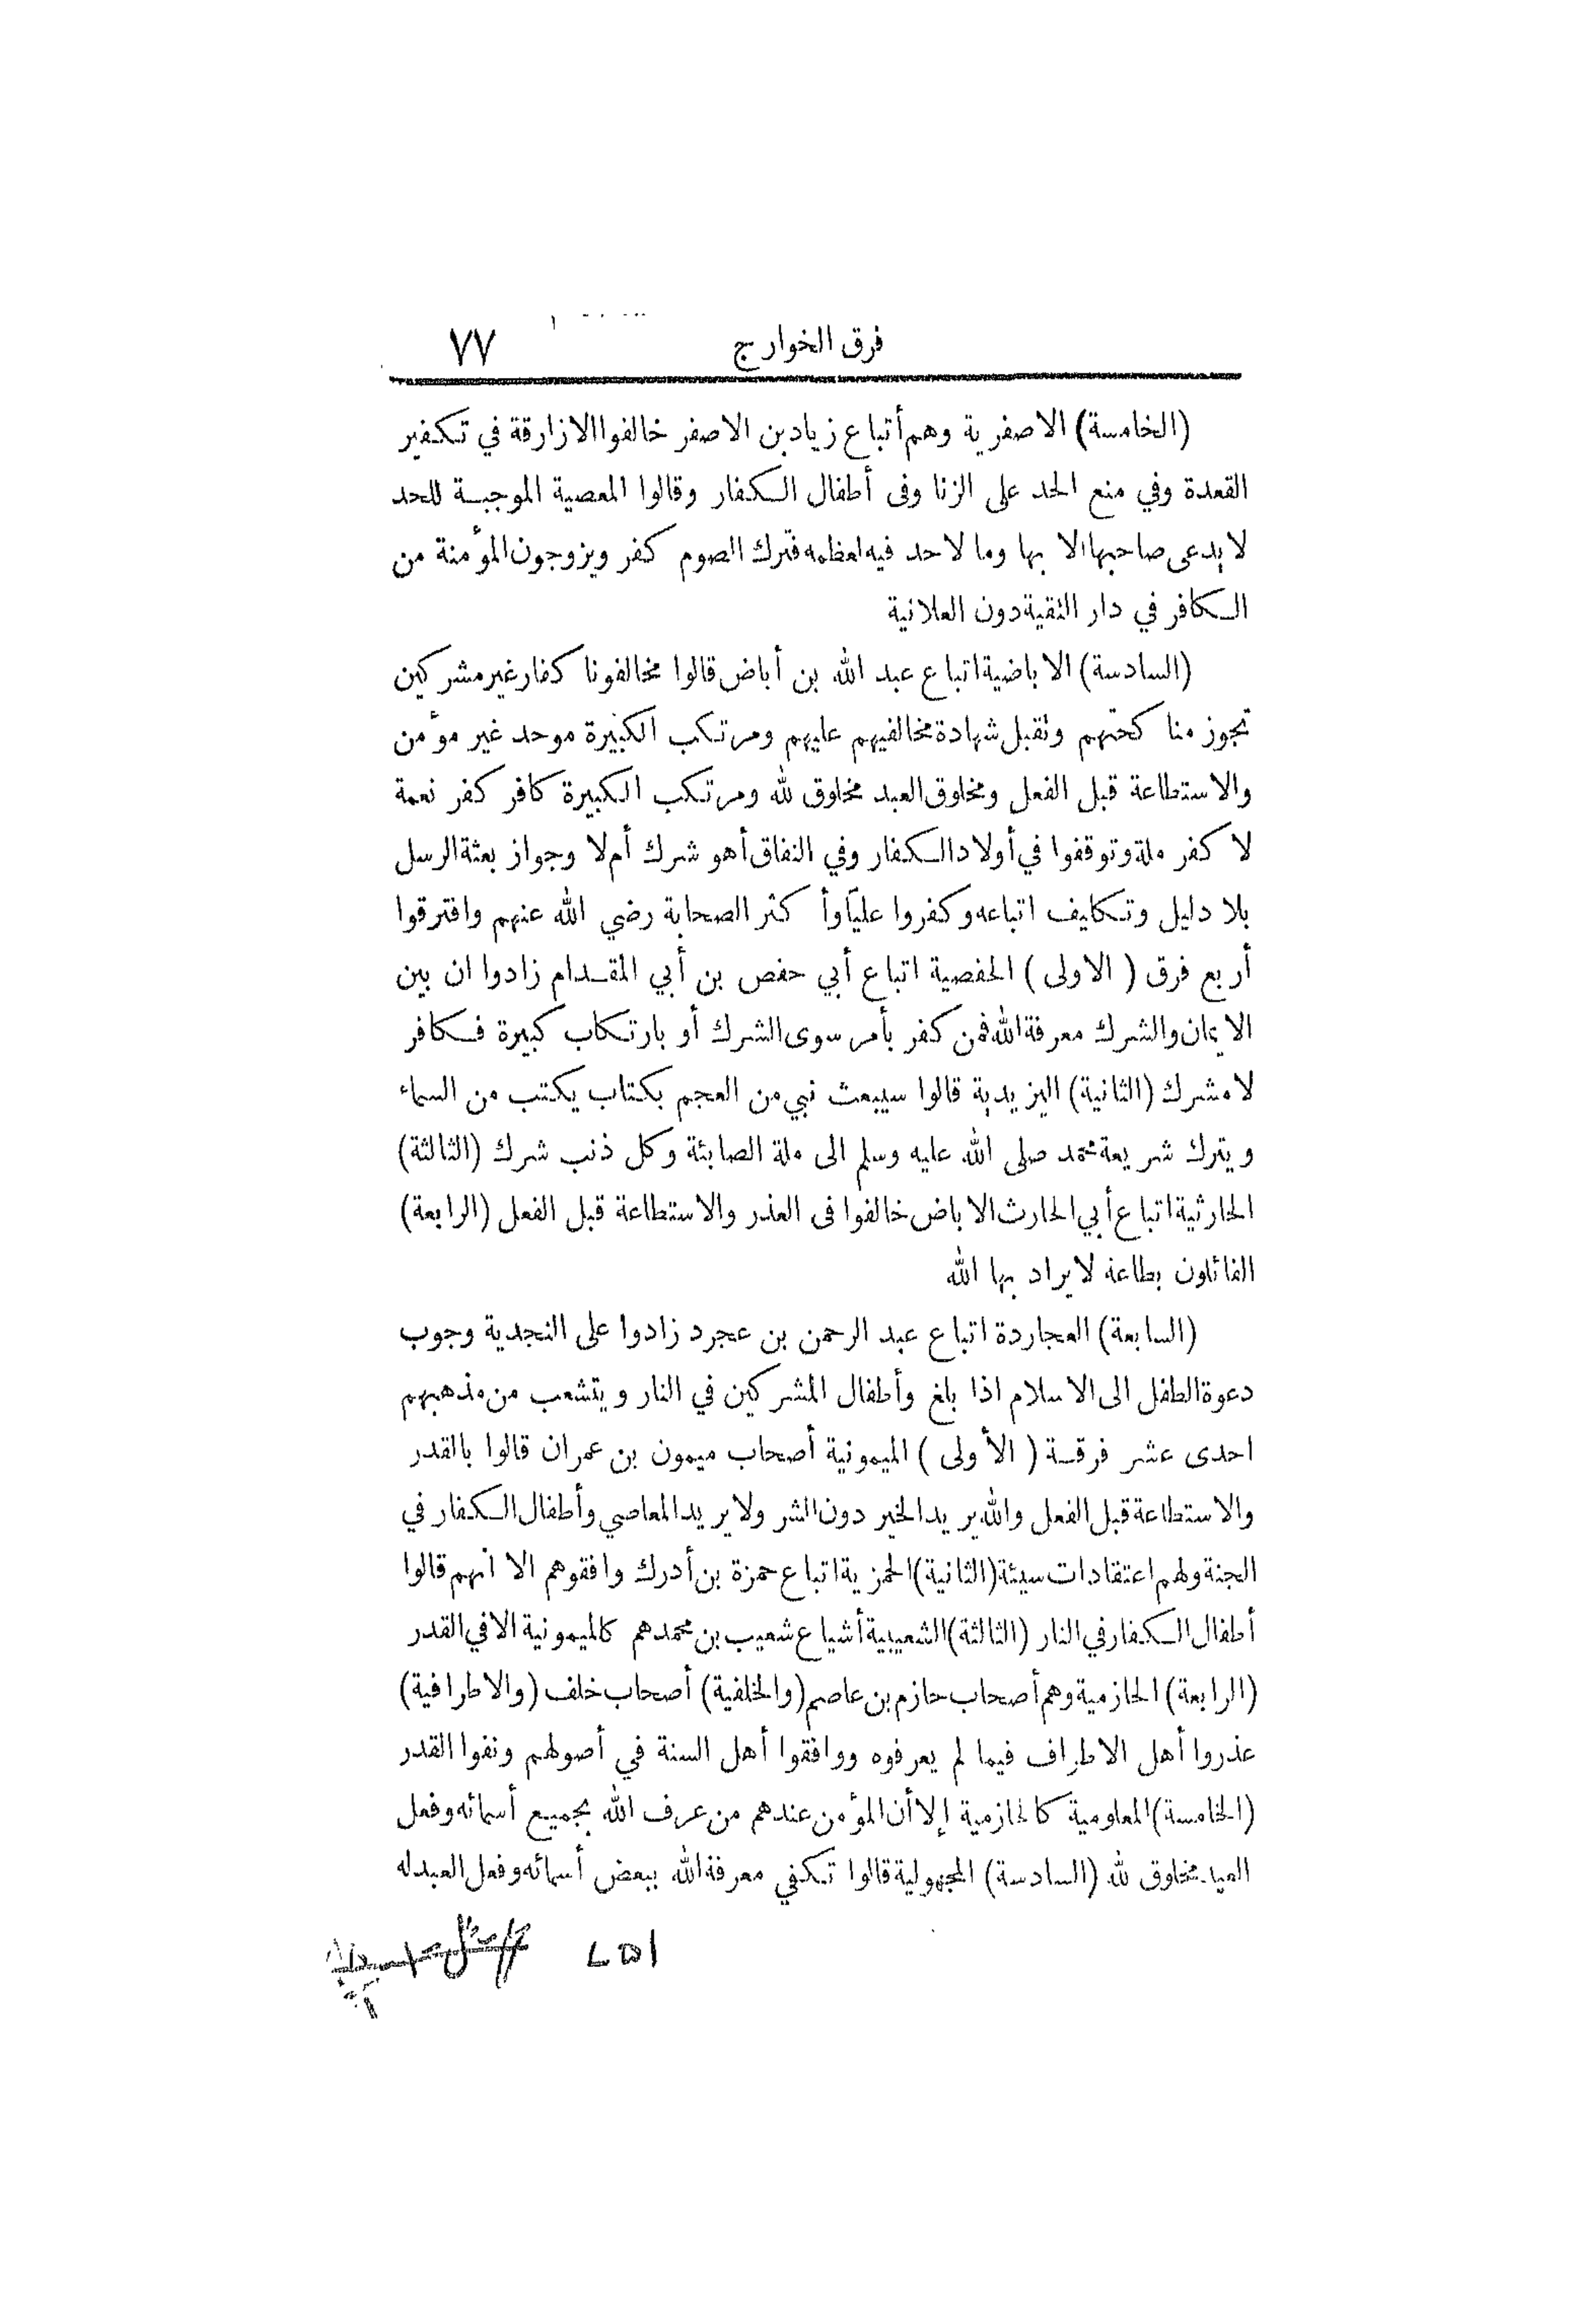 فرق الخوارج ٧٧
(الخامسة) الاصفرية وهم أتباع زياد بن الاصفر خالفوا الازارقة في تكفير
القعدة وفي منع الحد على الزنا وفى أطفال الكفار وقالوا المعصية الموجبة للحد
لا يدعى صاحبها الا بها وما لا حد فيه لعظمه فترك الصوم كفر ويزوجون المؤمنة من
الكافر في دار التقية دون العلانية
(السادسة) الاباضية اتباع عبد الله بن أباض قالوا مخالفونا كفار غير مشركين
تجوز مناكحتهم وتقبل شهادة مخالفيهم عليهم ومرتكب الكبيرة موحد غير مؤمن
والاستطاعة قبل الفعل ومخلوق العبد مخلوق لله ومرتكب الكبيرة كافر كفر نعمة
لا كفر ملة وتوقفوا في أولاد الكفار وفي النفاق أهو شرك أم لا وجواز بعثة الرسل
بلا دليل وتكليف اتباعه وكفروا علياً وأكثر الصحابة رضي الله عنهم وافترقوا
أربع فرق ( الاولى ) الحفصية اتباع أبي حفص بن أبي المقدام زادوا ان بين
الايمان والشرك معرفة الله فمن كفر بأمر سوى الشرك أو بارتكاب كبيرة فكافر
لا مشرك (الثانية) اليزيدية قالوا سيبعث نبي من العجم بكتاب يكتب من السماء
ويترك شريعة محمد صلى الله عليه وسلم الى ملة الصابئة وكل ذنب شرك (الثالثة)
الحارثية اتباع أبي الحارث الاباض خالفوا فى العذر والاستطاعة قبل الفعل (الرابعة)
القائلون بطاعة لا يراد بها الله
(السابعة) العجاردة اتباع عبد الرحمن بن عجرد زادوا على النجدية وجوب
دعوة الطفل الى الاسلام اذا بلغ وأطفال المشركين في النار ويتشعب من مذهبهم
احدى عشر فرقة ( الأولى ) الميمونية أصحاب ميمون بن عمران قالوا بالقدر
والاستطاعة قبل الفعل والله يريد الخير دون الشر ولا يريد المعاصي وأطفال الكفار في
الجنة ولهم اعتقادات سيئة (الثانية) الحمزية اتباع حمزة بن أدرك وافقوهم الا انهم قالوا
أطفال الكفار في النار (الثالثة) الشعيبية أشياع شعيب بن محمد هم كالميمونية الا في القدر
(الرابعة) الحازمية وهم أصحاب حازم بن عاصم (والخلفية) أصحاب خلف (والاطرافية)
عذروا أهل الاطراف فيما لم يعرفوه ووافقوا أهل السنة في أصولهم ونفوا القدر
(الخامسة) المعلومية كالحازمية إلا أن المؤمن عندهم من عرف الله بجميع أسمائه وفعل
العبد مخلوق لله (السادسة) المجهولية قالوا تكفي معرفة الله ببعض أسمائه وفعل العبد له